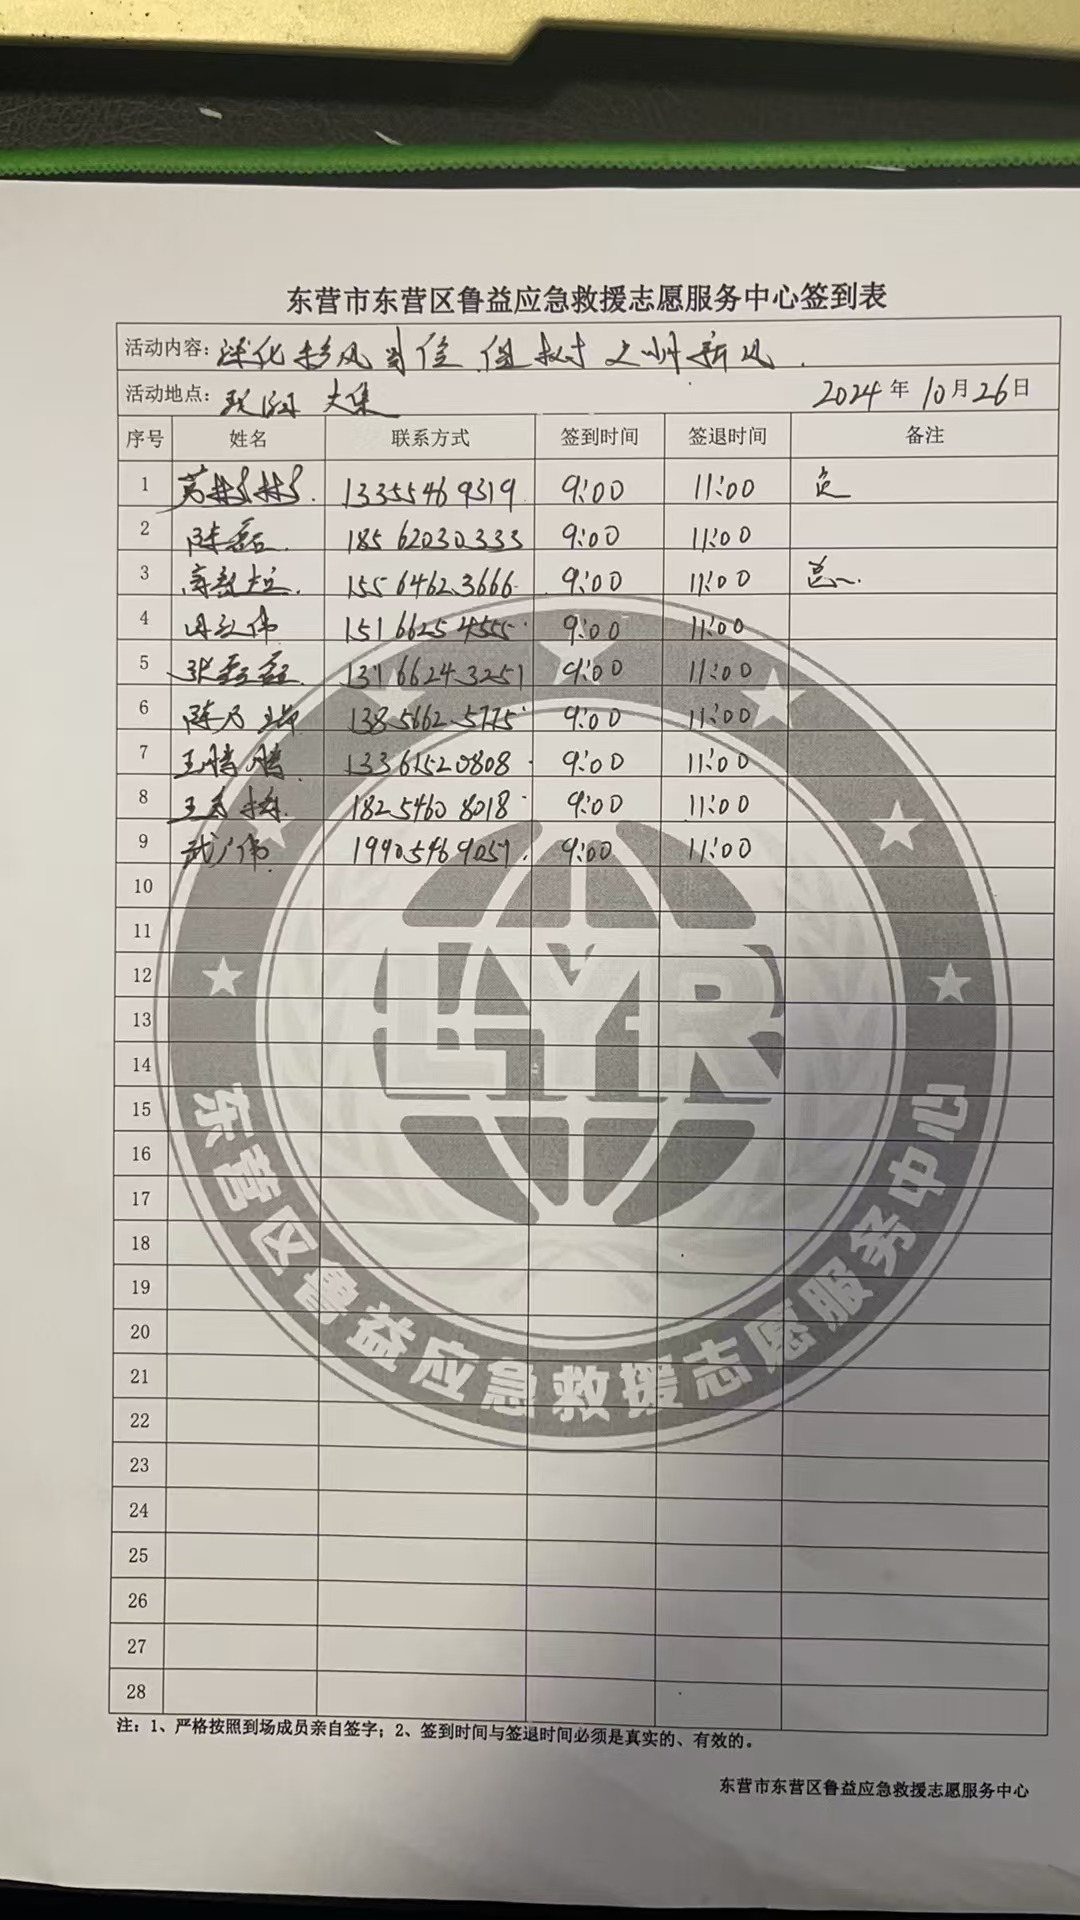 东营市东营区鲁益应急救援志愿服务中心签到表
活动内容：深化移风易俗 倡树文明新风.
活动地点： 大集 2024年10月26日
序号 姓名 联系方式 签到时间 签退时间 备注
1 13355469319 9:00 11:00
2 陈磊. 18562030333 9:00 11:00
3 15564623666 9:00 11:00
4 伟 15166254555 9:00 11:00
5 张磊磊. 13766243251 9:00 11:00
6 陈乃瑞 13856625775 9:00 11:00
7 王腾腾. 13361520808 9:00 11:00
8 王 18254608018 9:00 11:00
9 武广伟 19905469057. 9:00 11:00
10
11
12
13
14
15
16
17
18
19
20
21
22
23
24
25
26
27
28
LYR
东营区鲁益应急救援志愿服务中心
注：1、严格按照到场成员亲自签字；2、签到时间与签退时间必须是真实的、有效的。
东营市东营区鲁益应急救援志愿服务中心